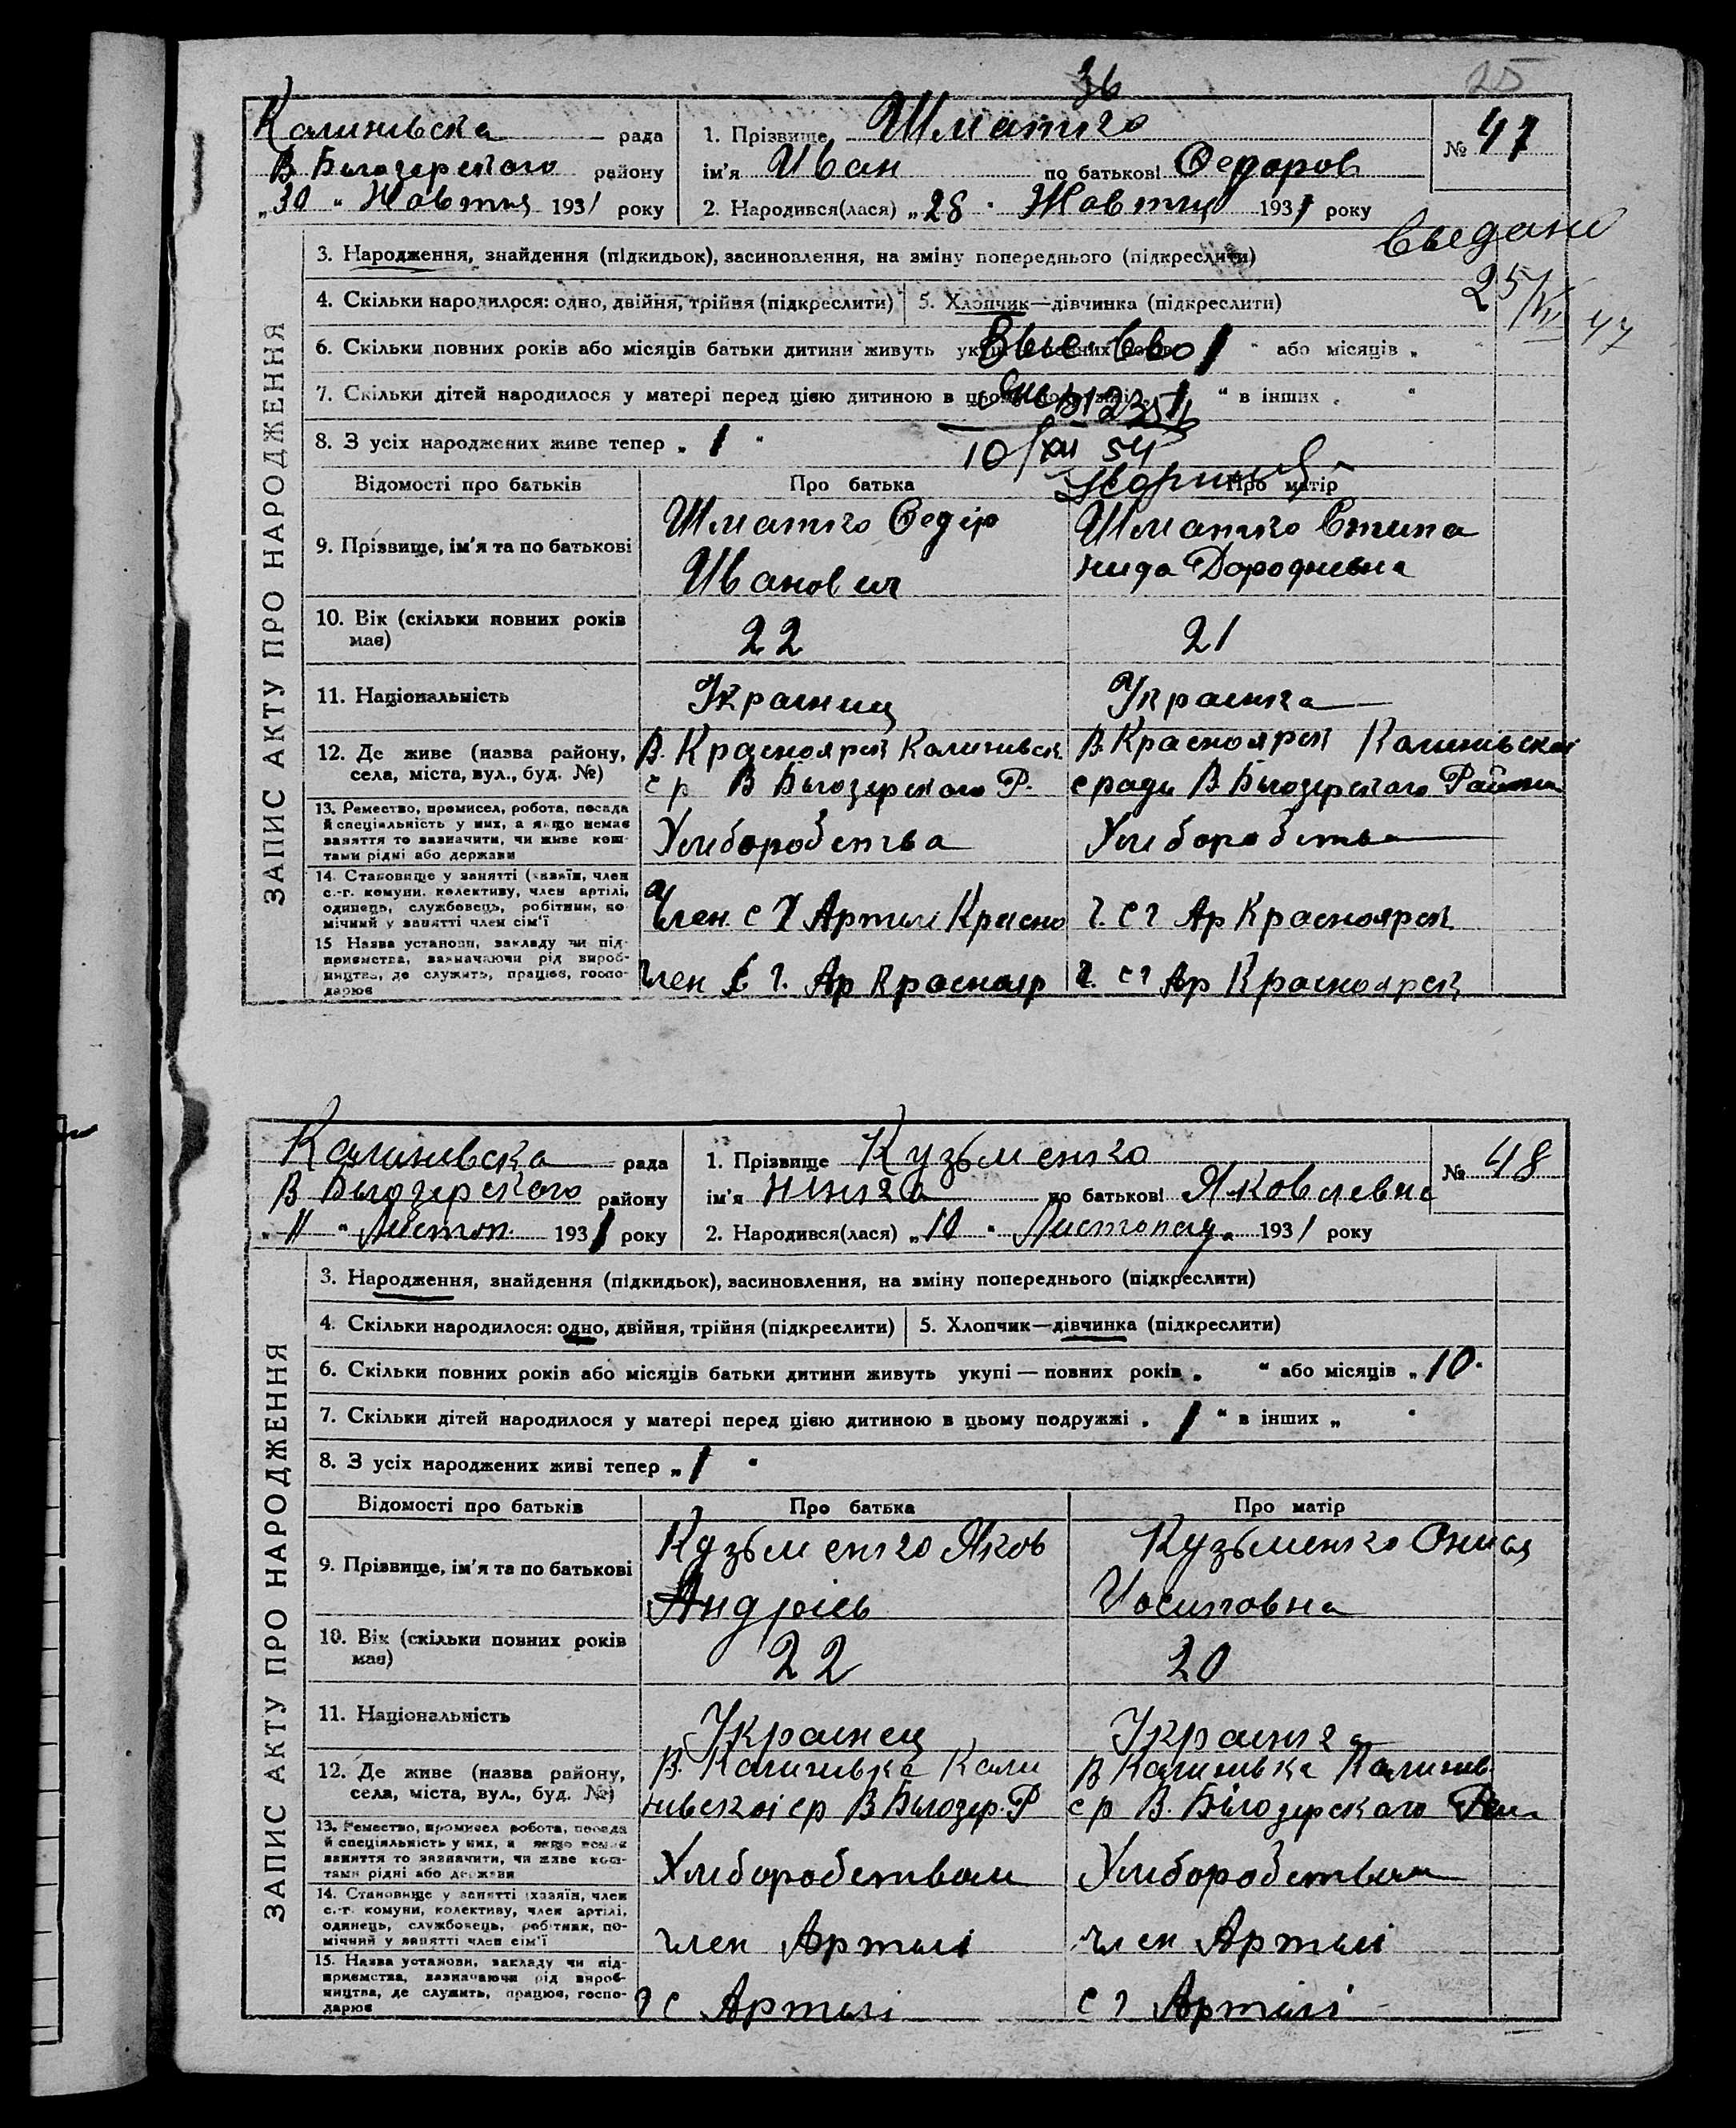 36
25
Калинівска рада
В Білозерского району
„30 “ Жовтня 1931 року
1. Прізвище Шматко
ім'я Иван по батькові Федоров
2. Народився(лася) „28 “ Жовтня 1931 року
№ 47
ЗАПИС АКТУ ПРО НАРОДЖЕННЯ
3. Народження, знайдення (підкидьок), засиновлення, на зміну попереднього (підкреслити)
25/VII 47
4. Скільки народилося: одно, двійня, трійня (підкреслити)
5. Хлопчик—дівчинка (підкреслити)
6. Скільки повних років або місяців батьки дитини живуть 1 “ або місяців „ “
7. Скільки дітей народилося у матері перед цією дитиною в 1 “ в інших „ “
8. З усіх народжених живе тепер „ 1 “
10/XII 54
Відомості про батьків
Про батька
Про матір
9. Прізвище, ім'я та по батькові
Шматко Федір
Иванович
Шматко Степа
нида Дородневна
10. Вік (скільки повних років має)
22
21
11. Національність
Украинец
Украинка
12. Де живе (назва району, села, міста, вул., буд. №)
В. Красноярск Калинивск.
с р В Білозерского Р.
В. Красноярск Калинивскоі
с ради В. Білозерского Района
13. Ремество, промисел, робота, посада й спеціяльність у них, а якщо немає заняття то зазначити, чи живе коштами рідні або держави
Хлиборобства
Хлиборобства
14. Становище у занятті (хазяїн, член с.-г. комуни, колективу, член артілі, одинець, службовець, робітник, помічний у занятті член сім'ї
Член. с г Артили Красно
ч. с г Ар Красноярск
15 Назва установи, закладу чи підприємства, зазначаючи рід виробництва, де служить, працює, господарює
член с г. Ар Краснояр
ч. с г Ар Красноярск
Калинивска рада
В Білозерского району
„ 11 “ Листоп. 1931 року
1. Прізвище Кузьменко
ім'я Нинка по батькові Яковлевна
2. Народився(лася) „10 “ Листопада 1931 року
№ 48
ЗАПИС АКТУ ПРО НАРОДЖЕННЯ
3. Народження, знайдення (підкидьок), засиновлення, на зміну попереднього (підкреслити)
4. Скільки народилося: одно, двійня, трійня (підкреслити)
5. Хлопчик—дівчинка (підкреслити)
6. Скільки повних років або місяців батьки дитини живуть укупі — повних років „ “ або місяців „ 10 “
7. Скільки дітей народилося у матері перед цією дитиною в цьому подружжі „ 1 “ в інших „ “
8. З усіх народжених живі тепер „ 1 “
Відомості про батьків
Про батька
Про матір
9. Прізвище, ім'я та по батькові
Кузьменко Яков
Андріев
Кузьменко Онися
Иосиповна
10. Вік (скільки повних років має)
22
20
11. Національність
Украинец
Украинка
12. Де живе (назва району, села, міста, вул., буд. №)
В. Калинивка Кали
нивскоі ср В Білозер. Р
В Калинивка Калинив.
с р В. Білозерского Рай
13. Ремество, промисел робота, посада й спеціяльність у них, а якщо немає заняття то зазначити, чи живе коштами рідні або держави
Хлиборобством
Хлиборобством
14. Становище у занятті (хазяїн, член с.-г. комуни, колективу, член артілі, одинець, службовець, робітник, помічний у занятті член сім'ї
член Артилі
член Артилі
15. Назва установи, закладу чи підприємства, зазначаючи рід виробництва, де служить, працює, господарює
г с Артилі
с г Артилі